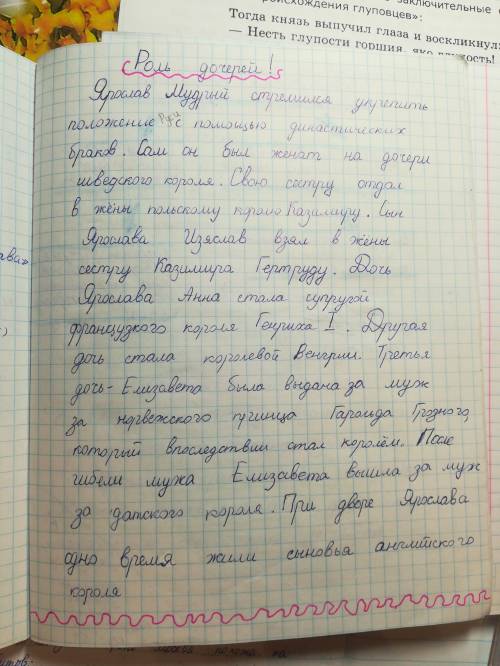 заключительные
происхождения глуповцев»:
Тогда князь выпучил глаза и воскликнул:
— Несть глупости горшия, яко глупость!
Роль дочерей!
Ярослав Мудрый стремился укрепить
положение Руси с помощью династических
браков. Сам он был женат на дочери
шведского короля. Свою сестру отдал
в жёны польскому королю Казимиру. Сын
Ярослава Изяслав взял в жёны
сестру Казимира Гертруду. Дочь
Ярослава Анна стала супругой
французкого короля Генриха I. Другая
дочь стала королевой Венгрии. Третья
дочь- Елизавета была выдана за муж
за норвежского принца Гаральда Грозного,
который впоследствии стал королём. После
гибели мужа Елизавета вышла за муж
за датского короля. При дворе Ярослава
одно время жили сыновья английского
короля